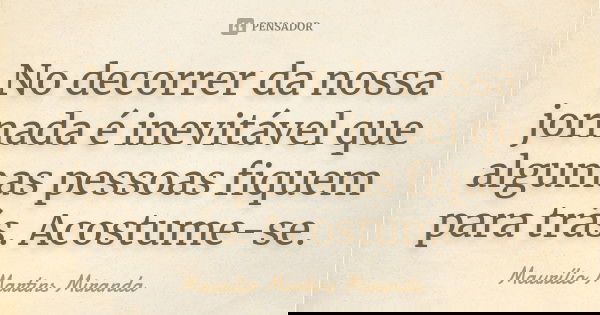 PENSADOR
No decorrer da nossa
jornada é inevitável que
algumas pessoas fiquem
para trás. Acostume-se.
Maurilio Martins Miranda